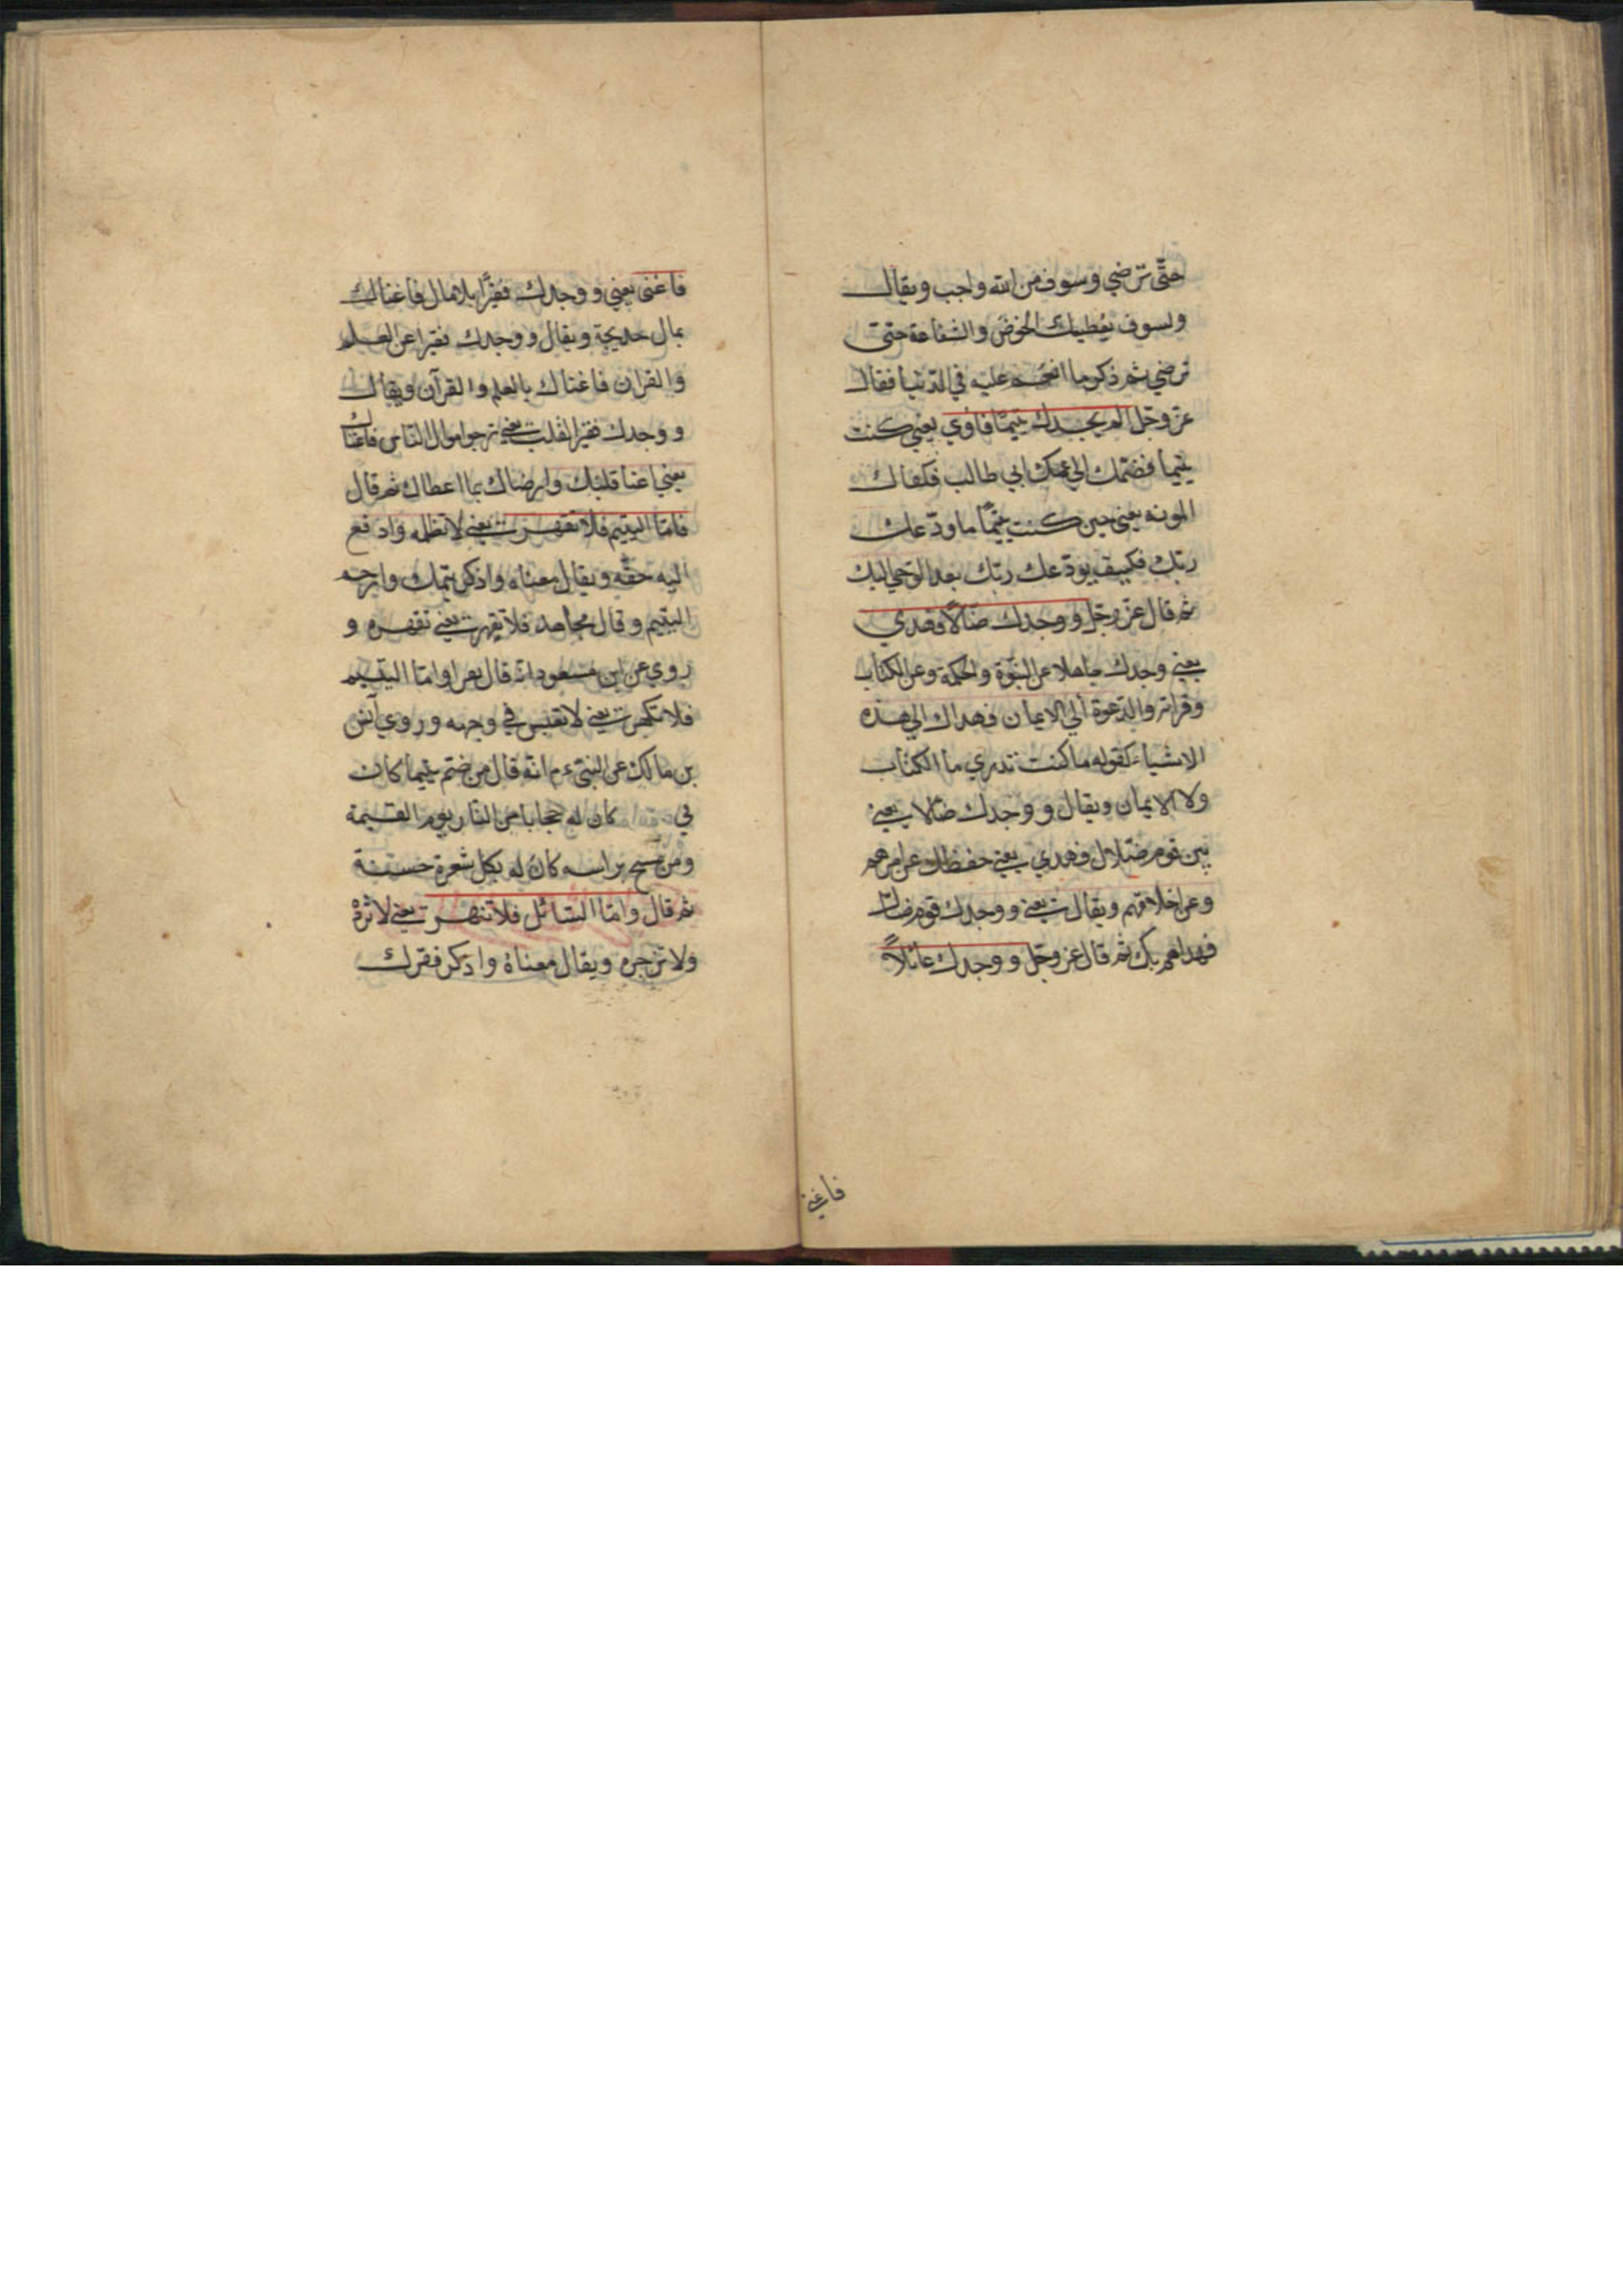 حتّى ترضي وسوف من الله واجب ويقال
ولسوف يعطيك الحوض والشفاعة حتى
ترضي ثم ذكر ما انعم عليه في الدنيا فقال
عزّ وجل الم يجدك يتيمًا فاوي يعني كنت
يتيما فضمّك الي عمك ابي طالب فكفاك
المونه يعني حين كنت يتيمًا ما ودّعك
ربّك فكيف يودّعك ربّك بعد الوحي اليك
ثم قال عزّ وجلّ ووجدك ضالاًّ فهدي
يعني وجدك جاهلا عن النبوّة والحكمة وعن الكتاب
وقراته والدعوة الي الايمان فهداك الي هذه
الاشياء كقوله ما كنت تدري ما الكتاب
ولا الايمان ويقال ووجدك ضالا يعني
بين قوم ضلال فهدي يعني حفظك عن امرهم
وعن اخلاقهم ويقال يعني ووجدك قوم ضال
فهداهم بك ثم قال عز وجّل ووجدك عائلاً
فاغني
فاغنى يعني ووجدك فقيرًا بلا مال فاغناك
بمال خديجة ويقال ووجدك فقيرا عن العلم
والقران فاغناك بالعلم والقرآن ويقال
ووجدك فقير القلب يعني ترجوا موال الناس فاغناك
يعني اغنا قلبك وارضاك بما اعطاك ثم قال
فامّا اليتيم فلا تقهر يعني لا تظلمه وادفع
اليه حقّه ويقال معناه واذكر يتمك وارحم
اليتيم وقال مجاهد فلا تقهر يعني تقهره و
روي عن ابن مسعود انه قال يقرا وامّا اليتيم
فلا تكهر يعني لا تعبس في وجهه وروي انس
بن مالك عن النبيّ ءم انّه قال من ضمّ يتيما كان
في كان له حجابا من النار يوم القيمة
ومن مسح براسه كان له بكل شعرة حسنة
ثم قال وامّا السائل فلا تنهر يعني لا ترده
ولا تزجره ويقال معناه واذكر فقرك